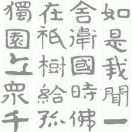 如是我聞一
舍衛國時佛
在祇樹給孤
獨園眾千